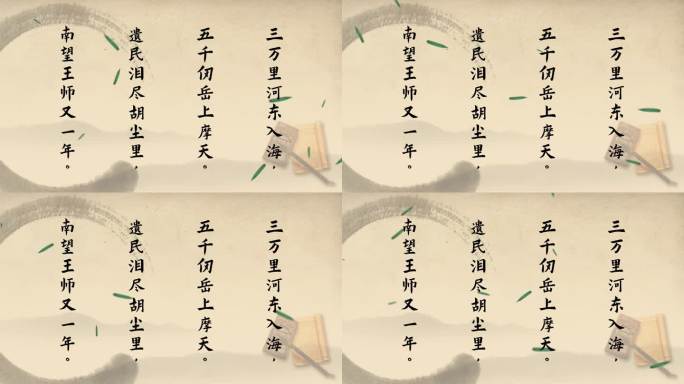 三万里河东入海，
五千仞岳上摩天。
遗民泪尽胡尘里，
南望王师又一年。
三万里河东入海，
五千仞岳上摩天。
遗民泪尽胡尘里，
南望王师又一年。
三万里河东入海，
五千仞岳上摩天。
遗民泪尽胡尘里，
南望王师又一年。
三万里河东入海，
五千仞岳上摩天。
遗民泪尽胡尘里，
南望王师又一年。